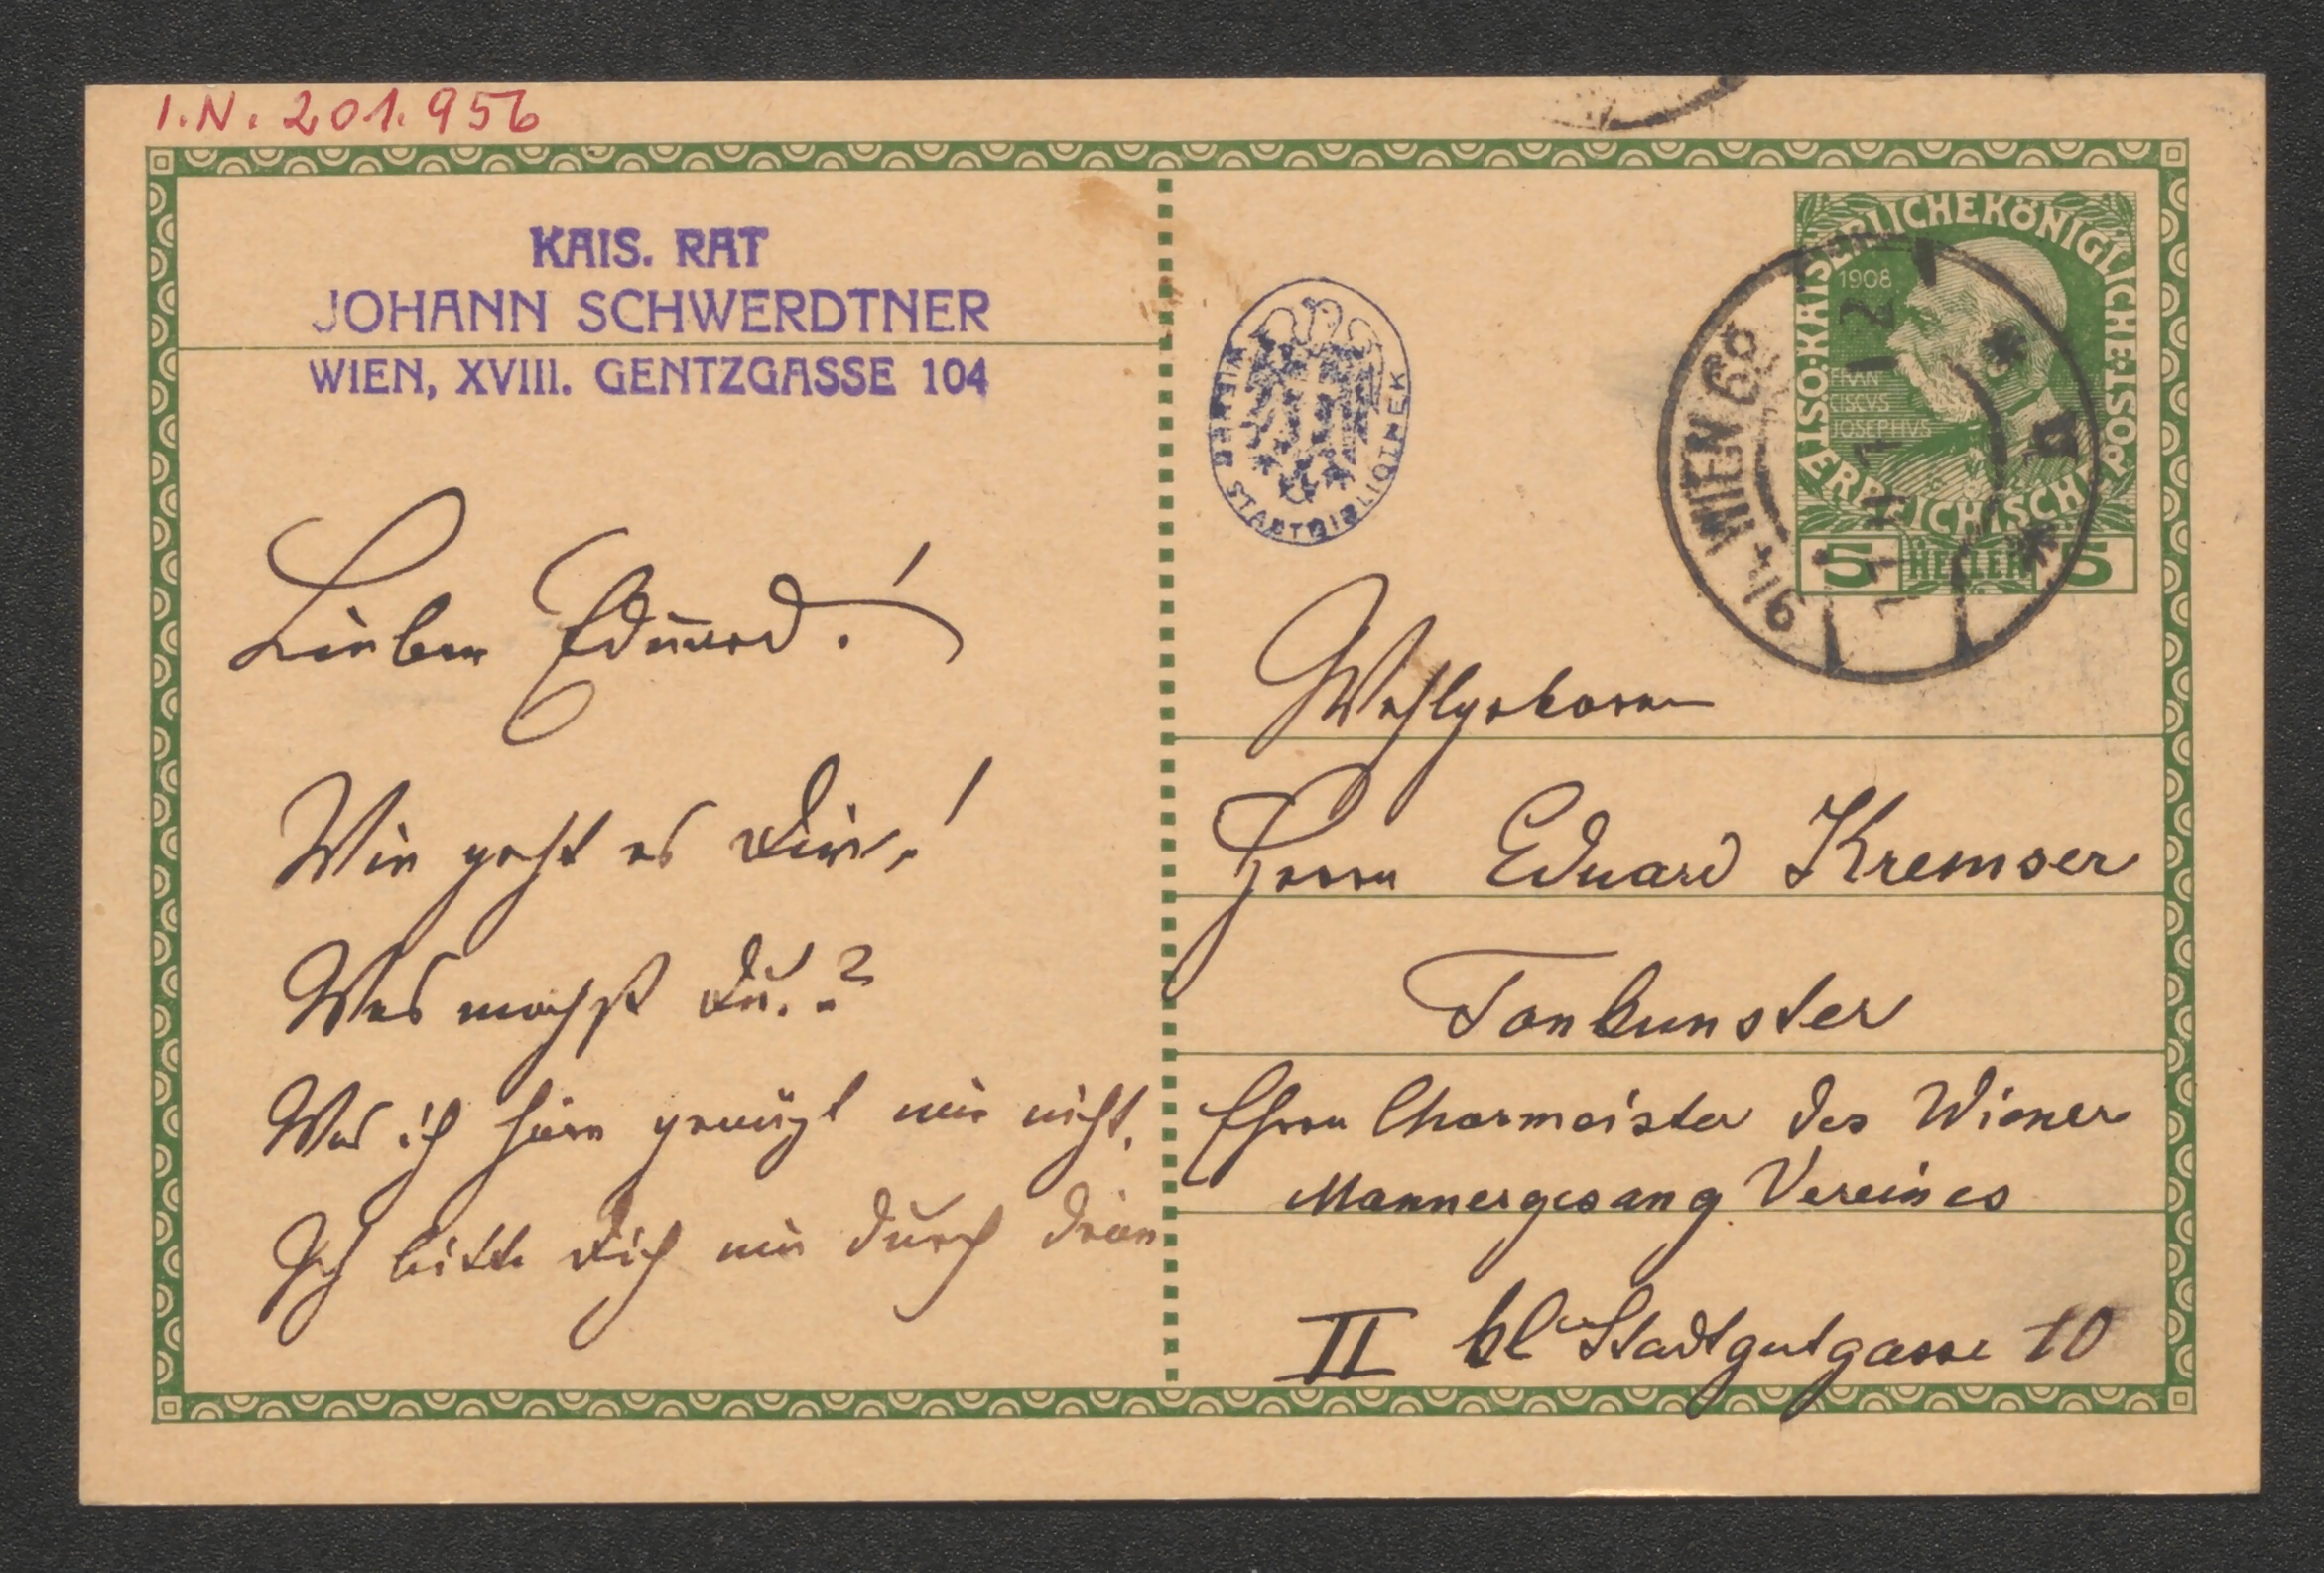 I.N. 201.956
KAIS. RAT
JOHANN SCHWERDTNER
WIEN, XVIII. GENTZGASSE 104
Lieber Eduard!
Wie geht es Dir,!
Was machst Du.?
Was ich höre genügt mir nicht,
Ich bitte Dich mir durch
WIENER STADTBIBLIOTHEK
KAISERLICHE KÖNIGLICHE ÖSTERREICHISCHE POST
1908
FRAN
CISCVS
JOSEPHVS
5 HELLER 5
9/4 WIEN 68
Wohlgeboren
Herrn Eduard Kremser
Tonkunster
Ehren Chormeister des Wiener
Mannergesang Vereines
II kl Stadtgutgasse 10